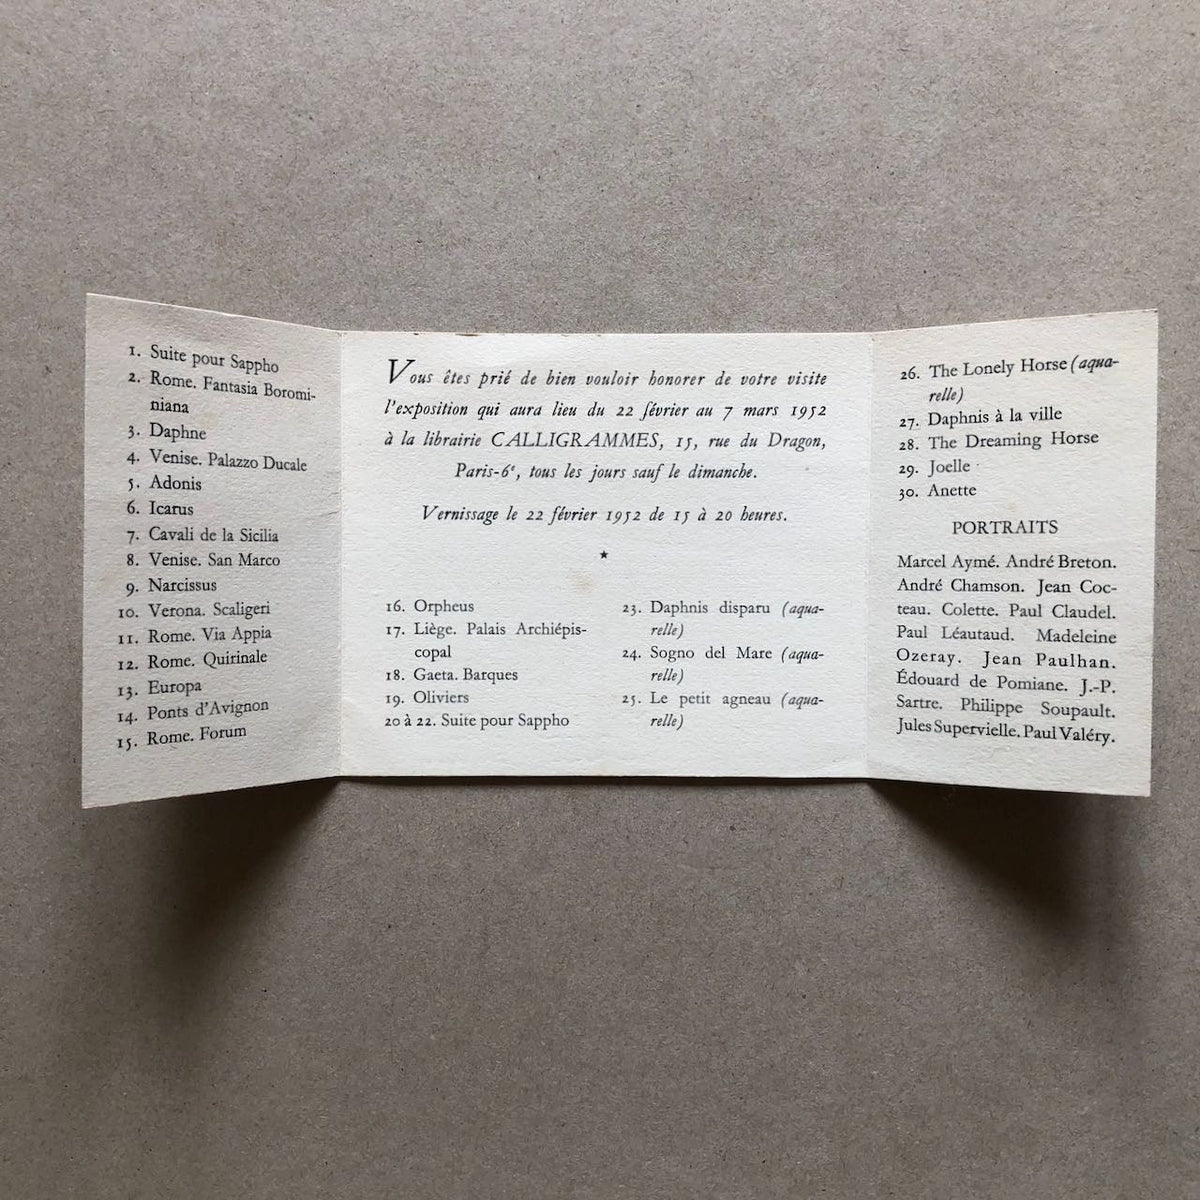 1. Suite pour Sappho
2. Rome. Fantasia Boromi-
niana
3. Daphne
4. Venise. Palazzo Ducale
5. Adonis
6. Icarus
7. Cavali de la Sicilia
8. Venise. San Marco
9. Narcissus
10. Verona. Scaligeri
11. Rome. Via Appia
12. Rome. Quirinale
13. Europa
14. Ponts d'Avignon
15. Rome. Forum
Vous êtes prié de bien vouloir honorer de votre visite
l'exposition qui aura lieu du 22 février au 7 mars 1952
à la librairie CALLIGRAMMES, 15, rue du Dragon,
Paris-6e, tous les jours sauf le dimanche.
Vernissage le 22 février 1952 de 15 à 20 heures.
★
16. Orpheus
17. Liège. Palais Archiépis-
copal
18. Gaeta. Barques
19. Oliviers
20 à 22. Suite pour Sappho
23. Daphnis disparu (aqua-
relle)
24. Sogno del Mare (aqua-
relle)
25. Le petit agneau (aqua-
relle)
26. The Lonely Horse (aqua-
relle)
27. Daphnis à la ville
28. The Dreaming Horse
29. Joelle
30. Anette
PORTRAITS
Marcel Aymé. André Breton.
André Chamson. Jean Coc-
teau. Colette. Paul Claudel.
Paul Léautaud. Madeleine
Ozeray. Jean Paulhan.
Édouard de Pomiane. J.-P.
Sartre. Philippe Soupault.
Jules Supervielle. Paul Valéry.